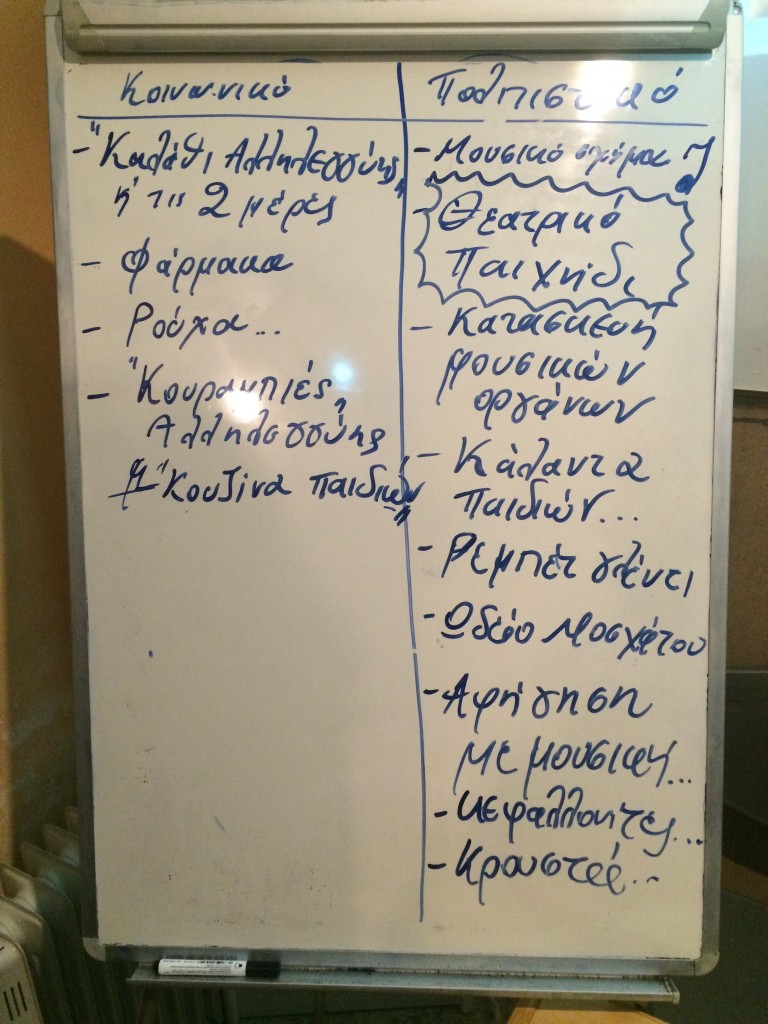 Κοινωνικό
- "Καλάθι Αλληλεγγύης"
ή τις 2 μέρες
- Φάρμακα
- Ρούχα...
- "Κουραμπιές
Αλληλεγγύης"
"Κουζίνα παιδικών"
Πολιτιστικό
- Μουσικό σχήμα
- Θεατρικό
Παιχνήδι
- Κατασκευή
μουσικών
οργάνων
- Κάλαντα
παιδιών...
- Ρεμπέτ γλέντι
- Ωδείο Μοσχάτου
- Αφήγηση
με μουσική...
- Κεφαλλονίτες...
- Κρουστές...